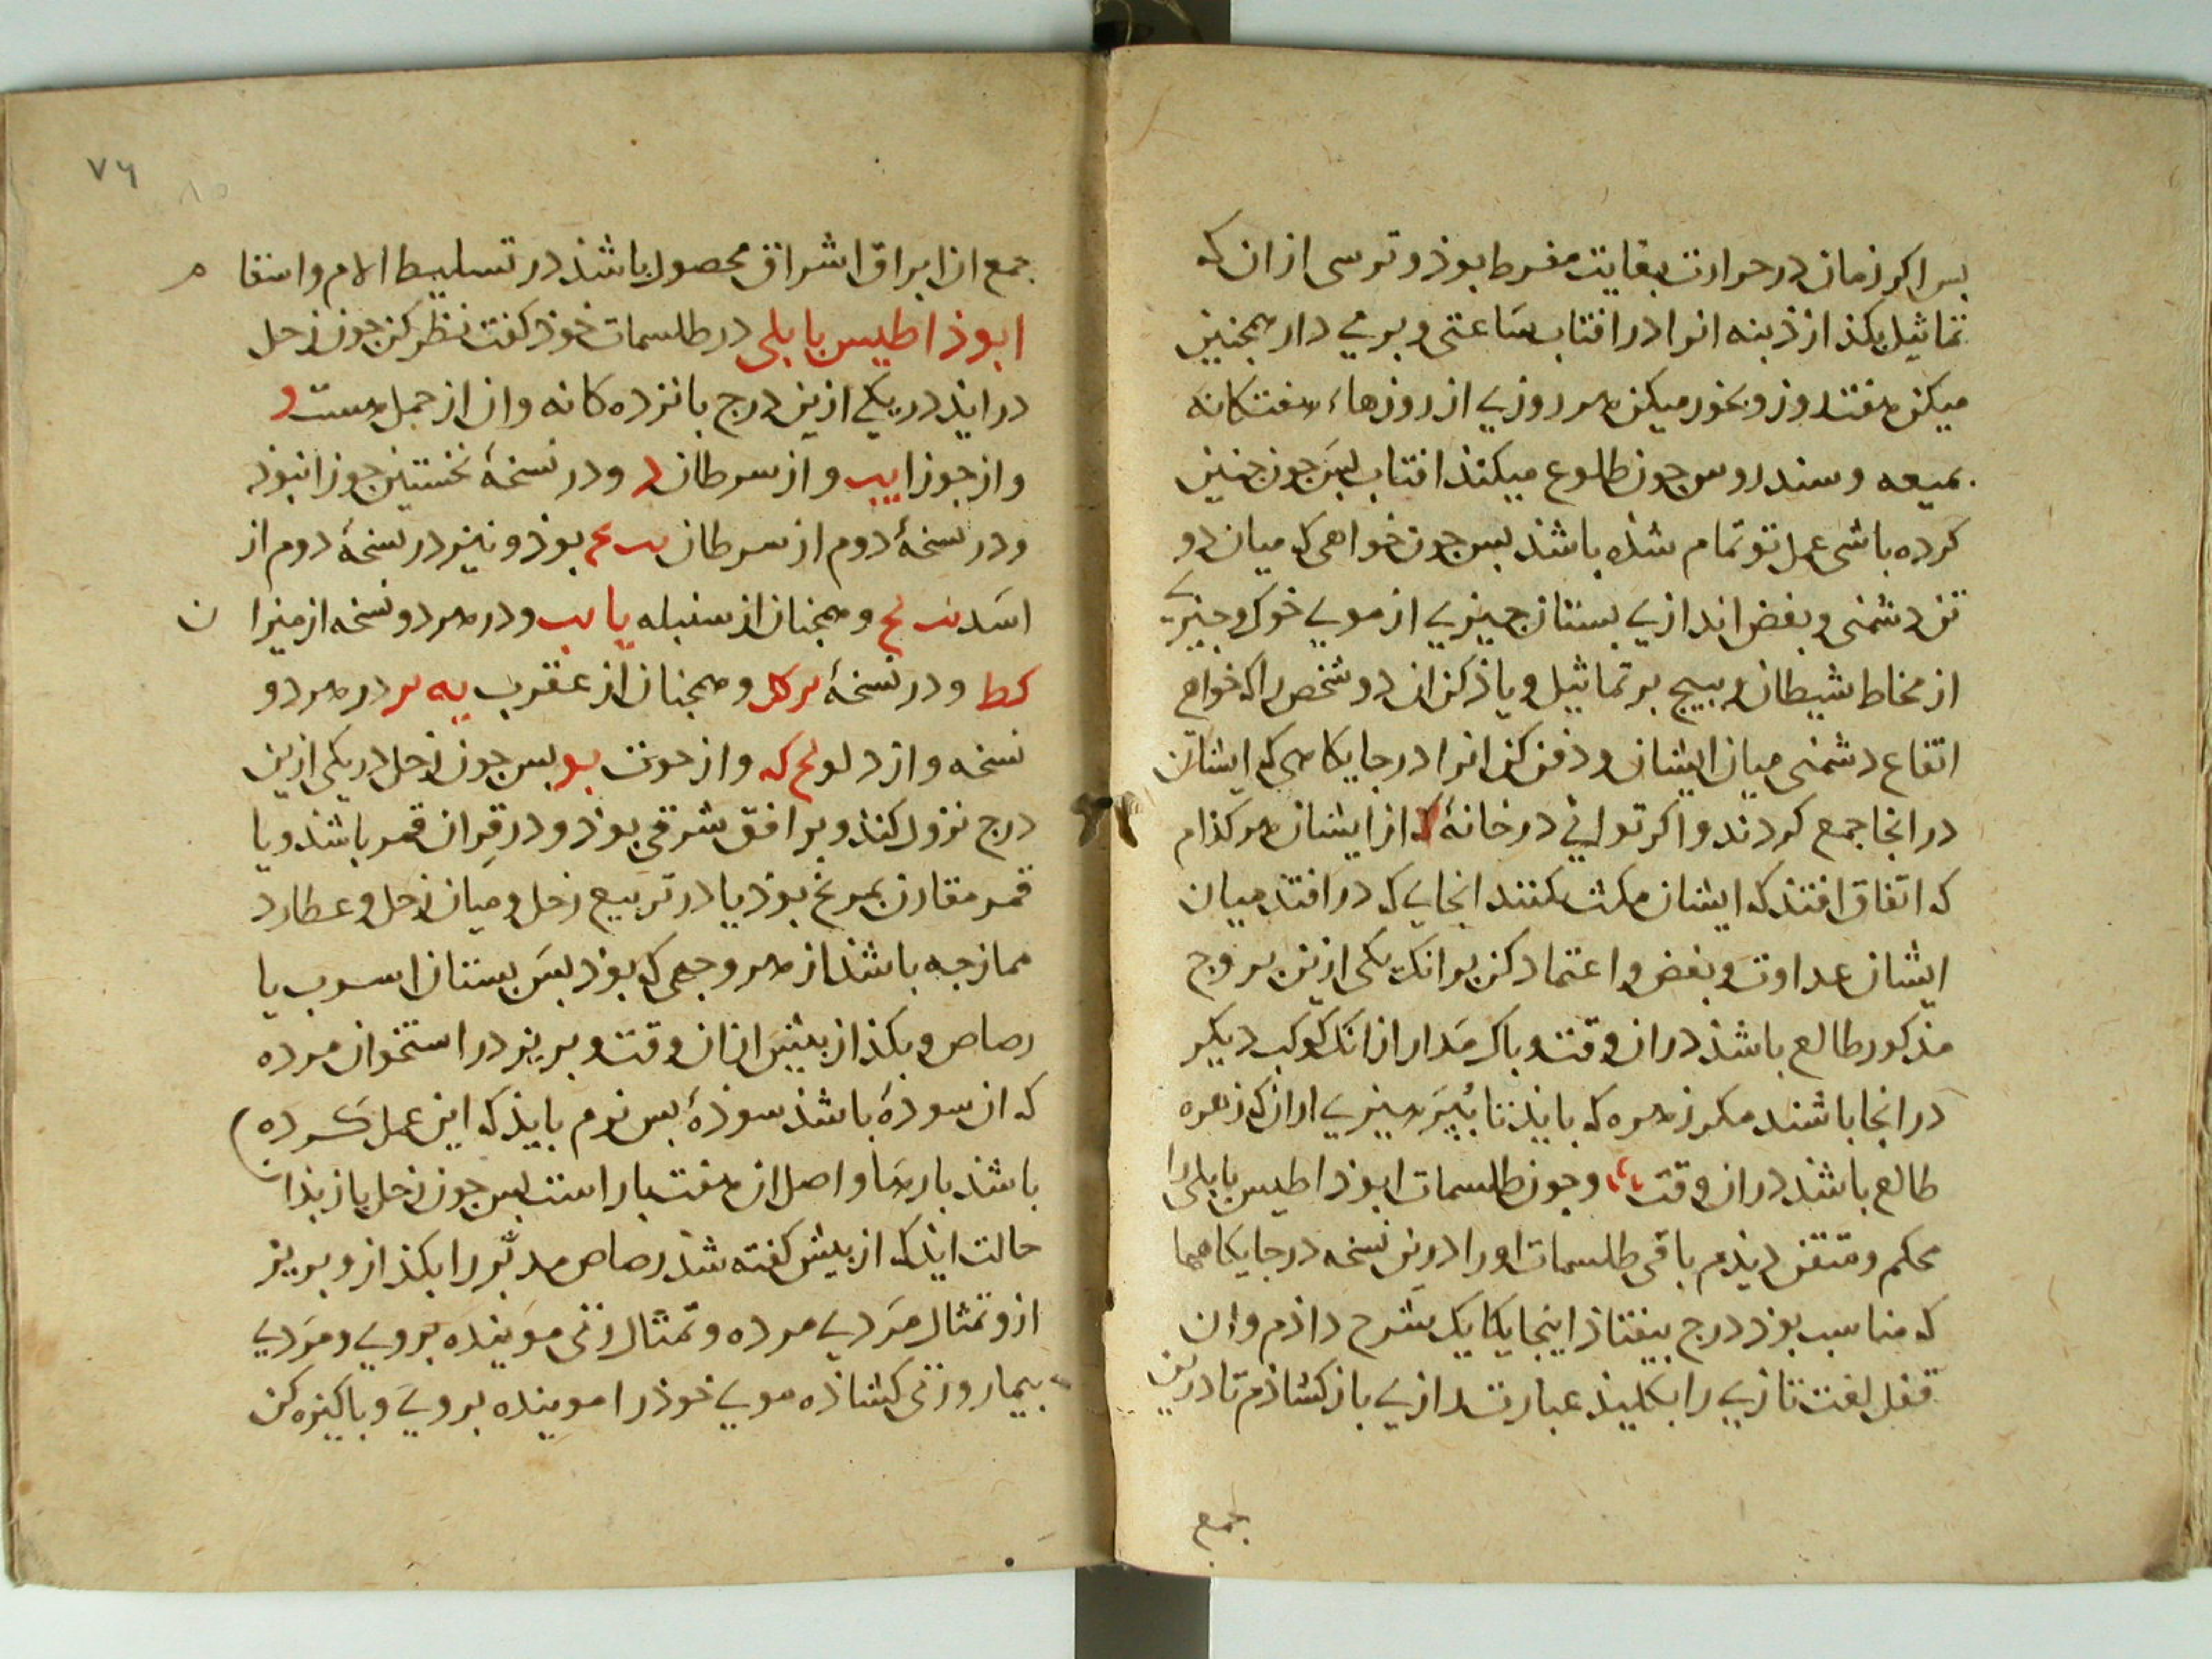 بس اکر زمان در حرارت بغایت مفرط بوذ و ترسی از ان که
تماثیل بکذازذ بنه انرا در افتاب ساعتی و بر می دار همجنین
میکن هفت روز و بخور میکن هر روزی از روزهاء هفتکانه
بمیعه و سندروس جون طلوع میکنذ افتاب بس جون جنین
کرده باشی عمل تو تمام شذه باشذ بس جون خواهی که میان دو
تن دشمنی و بغض اندازی بستان جیزی از موی خوک و جیزی
از مخاط شیطان و بپیج بر تماثیل و یاذ کن ان دو شخص را که خواهی
اتقاع دشمنی میان ایشان و دفن کن انرا در جایکاهی که ایشان
در انجا جمع کردند و اکر توانی در خانهٔ که از ایشان هر کذام
که اتفاق افتذ که ایشان مکث کنند انجایی که در افتذ میان
ایشان عداوت و بغض و اعتماد کن بر انک یکی ازین بروج
مذکور طالع باشذ در ان وقت و باک مدار از انک کوکب دیکر
در انجا باشند مکر زهره که بایذ تا بپرهیزی از ان که زهره
طالع باشذ در ان وقت و جون طلسمات ابوذاطیس بابلی را
محکم و متقن دیذم باقی طلسمات او را درین نسخه در جایکاهها
که مناسب بوذ درج بیفتاذ اینجا یکایک شرح داذم و ان
قفل لغت تازی را بکلیذ عبارت دازی باز کشاذم تا درین
جمع
۷۶
جمع از ابراق اشراق محصول باشذ در تسلیط الام و اسقام
ابوذاطیس بابلی در طلسمات خوذ کفت نظر کن جون زحل
در ایذ در یکی ازین درج بانزده کانه و ان از حمل هست و
و از جوزا یب و از سرطان د و در نسخهٔ نخستین جوزا نبوذ
و در نسخهٔ دوم از سرطان بوذ و نیز در نسخهٔ دوم از
اسد و همجنان از سنبله یا یب و در هر دو نسخه از میزان
کط و در نسخهٔ و همجنان از عقرب یه در هر دو
نسخه و از دلو که و از حوت بس جون زحل در یکی ازین
درج نزول کنذ و بر افق شرقی بوذ و در قران قمر باشذ و یا
قمر مقارن بمریخ بوذ یا در تربیع زحل و میان زحل و عطارد
ممازجه باشذ از هر وجهی که بوذ بس بستان اسرب یا
رصاص و بکذاز بیش از ان وقت و بریز در استخوان مرده
که از سوذهٔ باشذ سوذهٔ بس نوم بایذ که این عمل کرده
باشذ بارها و اصل از هفت بار است بس جون زحل باز بذان
حالت ایذ که از بیش کفته شذ رصاص مدبر را بکذاز و بریز
ازو تمثال مردی مرده و تمثال زنی موینده بروی و مردی
بیمار و زنی کشاذه موی خوذ را موینده بروی و باکیزه کن